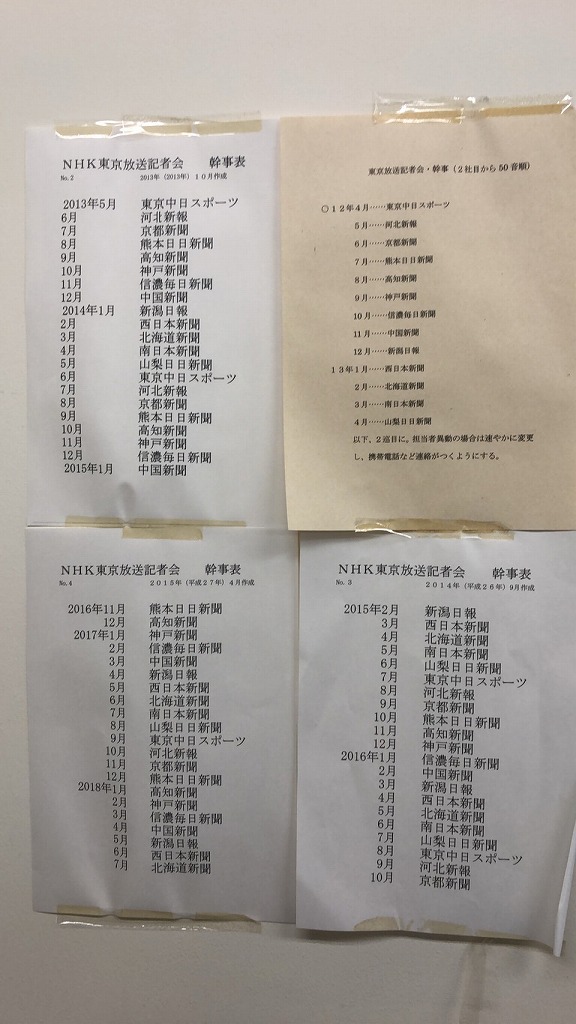 NHK東京放送記者会 幹事表
No.2 2013年（2013年）10月作成
2013年5月 東京中日スポーツ
6月 河北新報
7月 京都新聞
8月 熊本日日新聞
9月 高知新聞
10月 神戸新聞
11月 信濃毎日新聞
12月 中国新聞
2014年1月 新潟日報
2月 西日本新聞
3月 北海道新聞
4月 南日本新聞
5月 山梨日日新聞
6月 東京中日スポーツ
7月 河北新報
8月 京都新聞
9月 熊本日日新聞
10月 高知新聞
11月 神戸新聞
12月 信濃毎日新聞
2015年1月 中国新聞
東京放送記者会・幹事（2社目から50音順）
○12年4月……東京中日スポーツ
5月……河北新報
6月……京都新聞
7月……熊本日日新聞
8月……高知新聞
9月……神戸新聞
10月……信濃毎日新聞
11月……中国新聞
12月……新潟日報
13年1月……西日本新聞
2月……北海道新聞
3月……南日本新聞
4月……山梨日日新聞
以下、2巡目に。担当者異動の場合は速やかに変更
し、携帯電話など連絡がつくようにする。
NHK東京放送記者会 幹事表
No.4 2015年（平成27年）4月作成
2016年11月 熊本日日新聞
12月 高知新聞
2017年1月 神戸新聞
2月 信濃毎日新聞
3月 中国新聞
4月 新潟日報
5月 西日本新聞
6月 北海道新聞
7月 南日本新聞
8月 山梨日日新聞
9月 東京中日スポーツ
10月 河北新報
11月 京都新聞
12月 熊本日日新聞
2018年1月 高知新聞
2月 神戸新聞
3月 信濃毎日新聞
4月 中国新聞
5月 新潟日報
6月 西日本新聞
7月 北海道新聞
NHK東京放送記者会 幹事表
No.3 2014年（平成26年）9月作成
2015年2月 新潟日報
3月 西日本新聞
4月 北海道新聞
5月 南日本新聞
6月 山梨日日新聞
7月 東京中日スポーツ
8月 河北新報
9月 京都新聞
10月 熊本日日新聞
11月 高知新聞
12月 神戸新聞
2016年1月 信濃毎日新聞
2月 中国新聞
3月 新潟日報
4月 西日本新聞
5月 北海道新聞
6月 南日本新聞
7月 山梨日日新聞
8月 東京中日スポーツ
9月 河北新報
10月 京都新聞